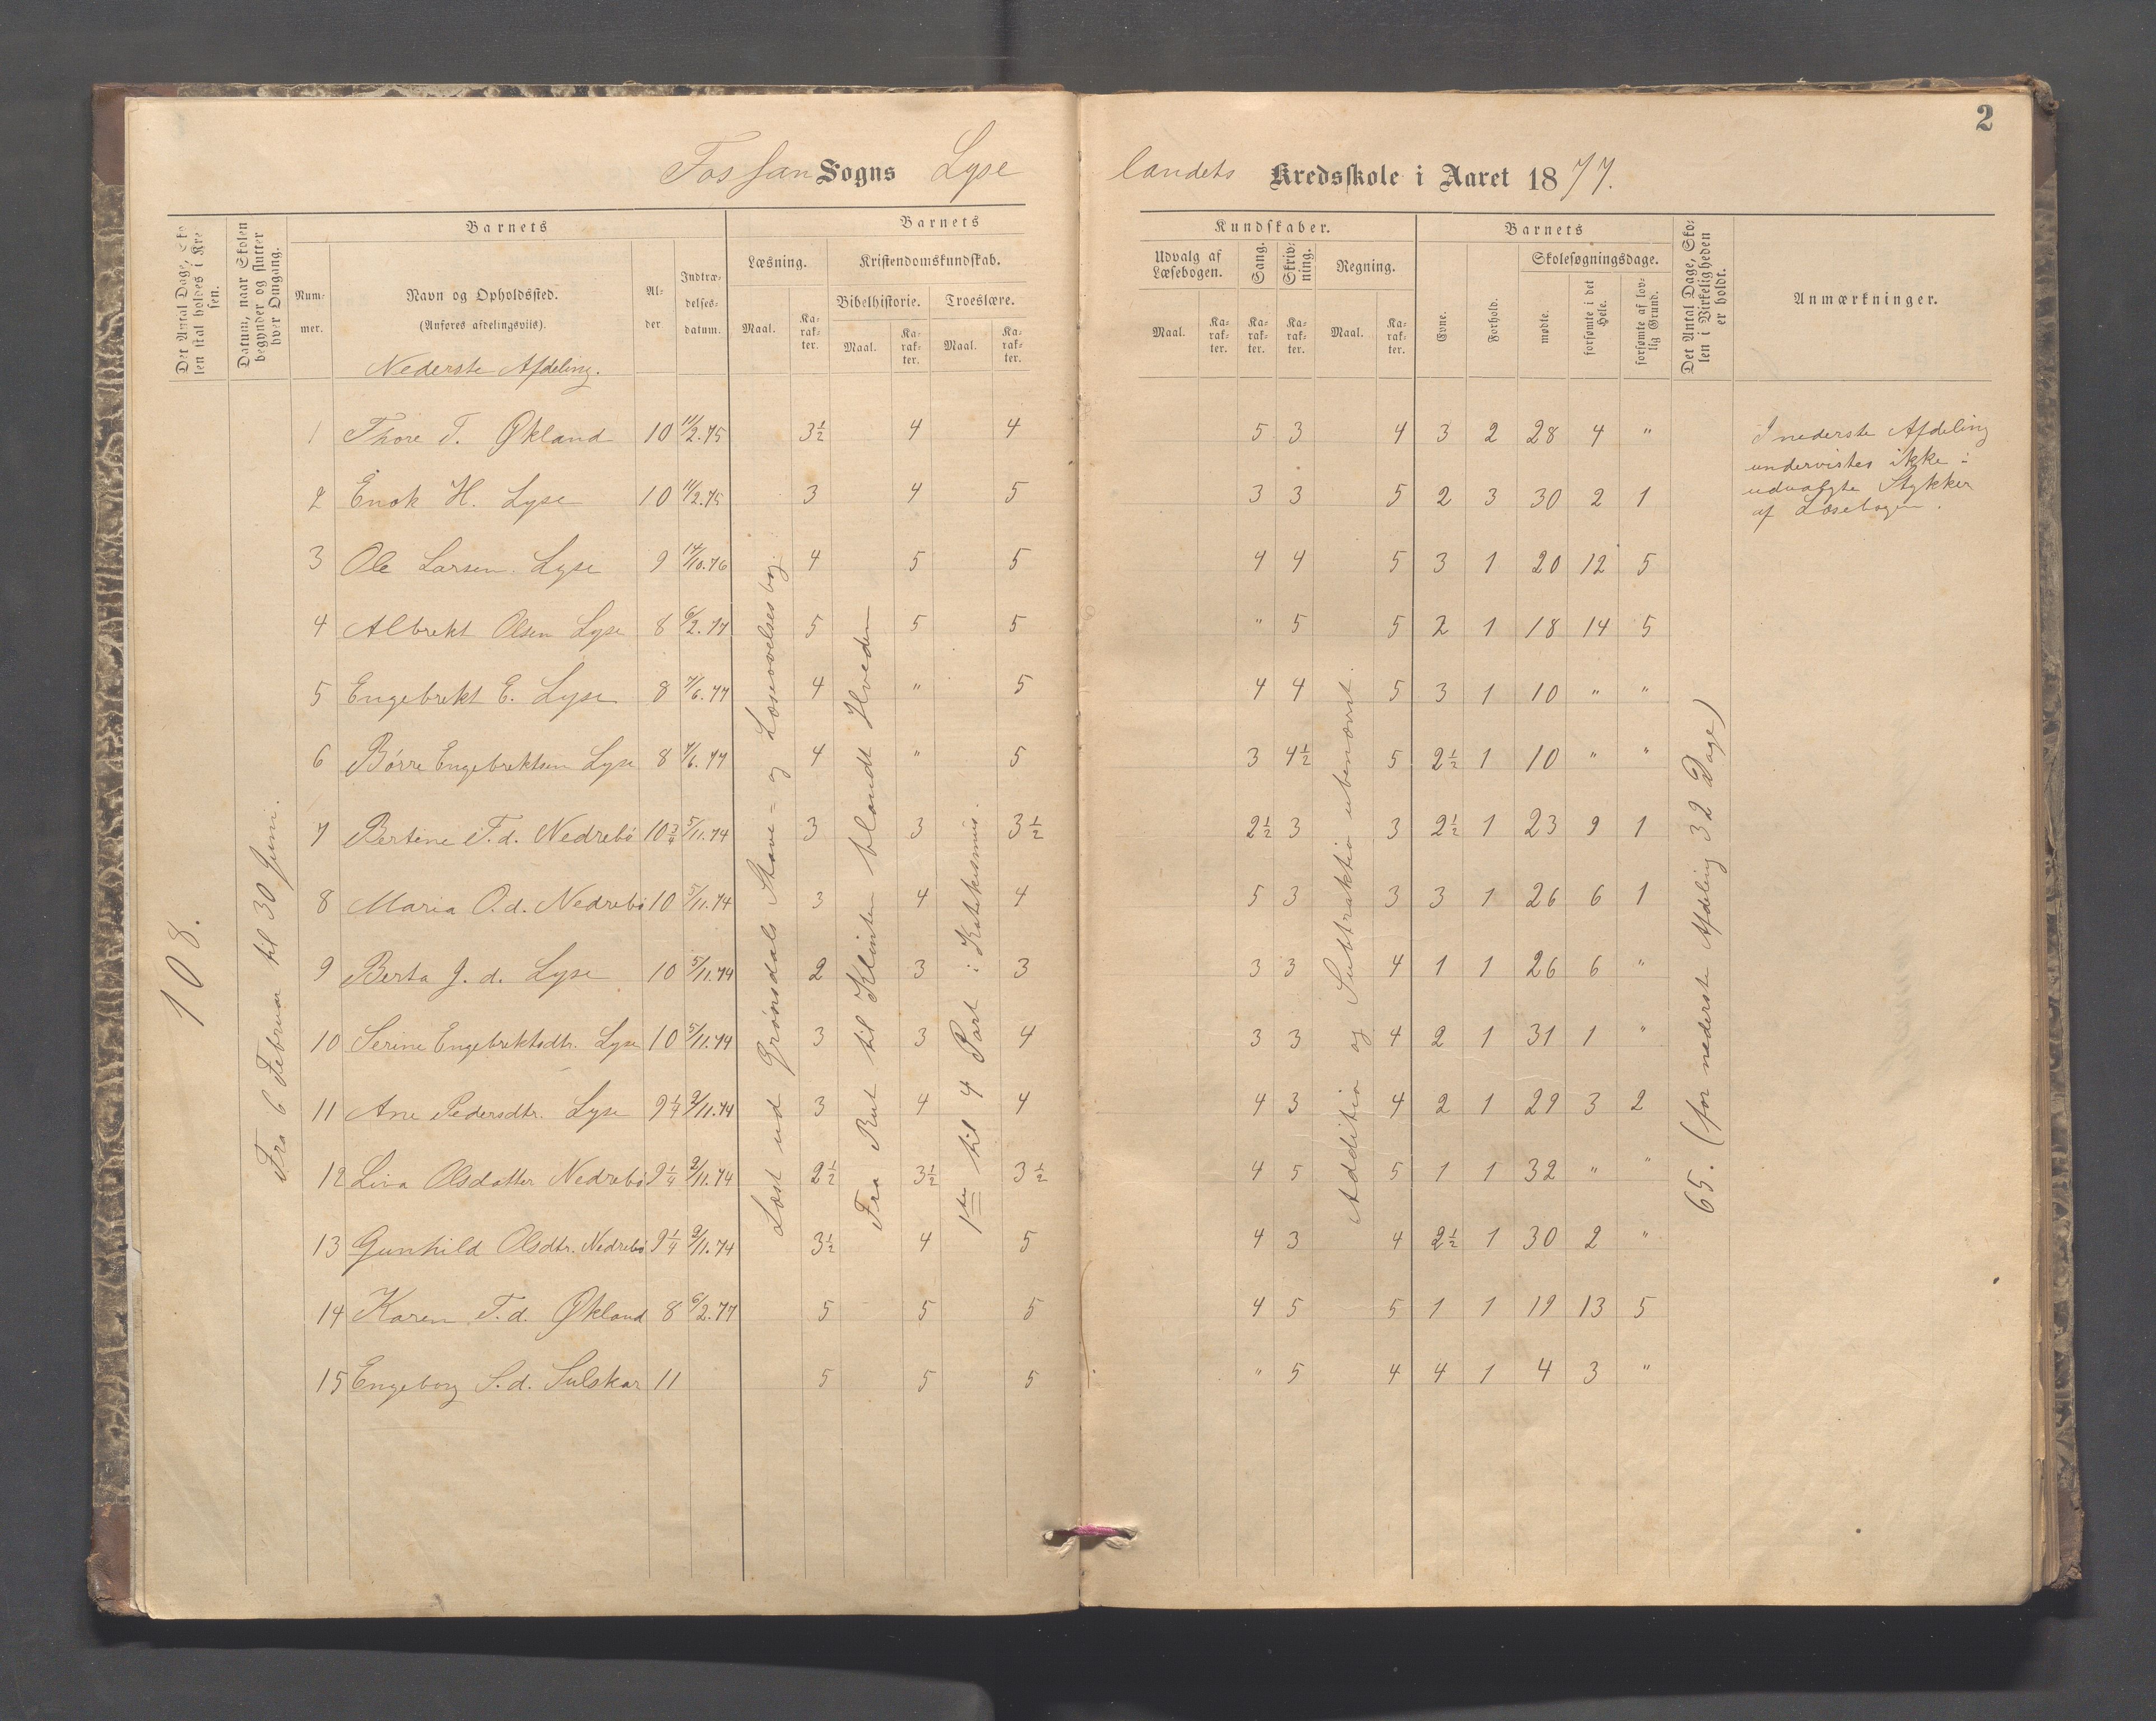 2
Fossan Sogns Lyse landets Kredsskole i Aaret 1877.
Det Antal Dage, Skolen skal holdes i Kredsen.
Datum, naar Skolen begynder og slutter hver Omgang.
Barnets
Num-mer.
Navn og Opholdssted.
(Anføres afdelingsviis).
Al-der
Indtræ-delses-datum.
Barnets Kundskaber.
Læsning.
Maal.
Ka-rak-ter.
Kristendomskundskab.
Bibelhistorie.
Maal.
Ka-rak-ter.
Troeslære.
Maal.
Ka-rak-ter.
Udvalg af Læsebogen.
Maal.
Ka-rak-ter.
Sang.
Ka-rak-ter.
Skriv-ning.
Ka-rak-ter.
Regning.
Maal.
Ka-rak-ter.
Barnets
Evne.
Forhold.
Skolesøgningsdage.
mødte.
forsømte i det Hele.
forsømte af lov-lig Grund.
Det Antal Dage, Sko-len i Virkeligheden er holdt.
Anmærkninger.
Nederste Afdeling.
1 Thore T. Økland 10 11/2.75 3½ 4 4 5 3 4 3 2 28 4 "
2 Enok H. Lyse 10 11/2.75 3 4 5 3 3 5 2 3 30 2 1
3 Ole Larsen Lyse 9 14/10.76 4 5 5 4 4 5 3 1 20 12 5
4 Albrekt Olsen Lyse 8 6/2.77 5 5 5 " 5 5 2 1 18 14 5
5 Engebrekt E. Lyse 8 7/6.77 4 " 5 4 4 5 3 1 10 " "
6 Børre Engebrektsen Lyse 8 7/6.77 4 " 5 3 4½ 5 2½ 1 10 " "
7 Bertine T. d. Nedrebø 10¾ 5/11.74 3 3 3½ 2½ 3 3 2½ 1 23 9 1
8 Maria O. d. Nedrebø 10 5/11.74 3 4 4 5 3 3 3 1 26 6 1
9 Berta J. d. Lyse 10 5/11.74 2 3 3 3 3 4 1 1 26 6 "
10 Serine Engebrektsdtr. Lyse 10 5/11.74 3 3 4 3 3 4 2 1 31 1 "
11 Ane Pedersdtr. Lyse 9¼ 2/11.74 3 4 4 4 3 4 2 1 29 3 2
12 Lina Olsdatter Nedrebø 9¼ 2/11.74 2½ 3½ 3½ 4 5 5 1 1 32 " "
13 Gunhild Olsdtr. Nedrebø 9¼ 2/11.74 3½ 4 5 4 3 4 2½ 1 30 2 "
14 Karen T. d. Økland 8 6/2.77 5 5 5 4 5 5 1 1 19 13 5
15 Engeborg S. d. Sulskar 11 5 5 5 " 5 4 4 1 4 3 "
108.
Fra 6 Februar til 30 Juni.
Læst ud Grönsdals Stave- og Læseøvelsesbog.
Fra Rut til Klinten blandt Hveden
1ste til 4 Part i Katekismus.
Addition og Subtraktion ubenævnt.
65. (for nederste Afdeling 32 Dage)
I nederste Afdeling
undervistes ikke i
udvalgte Stykker
af Læsebogen.